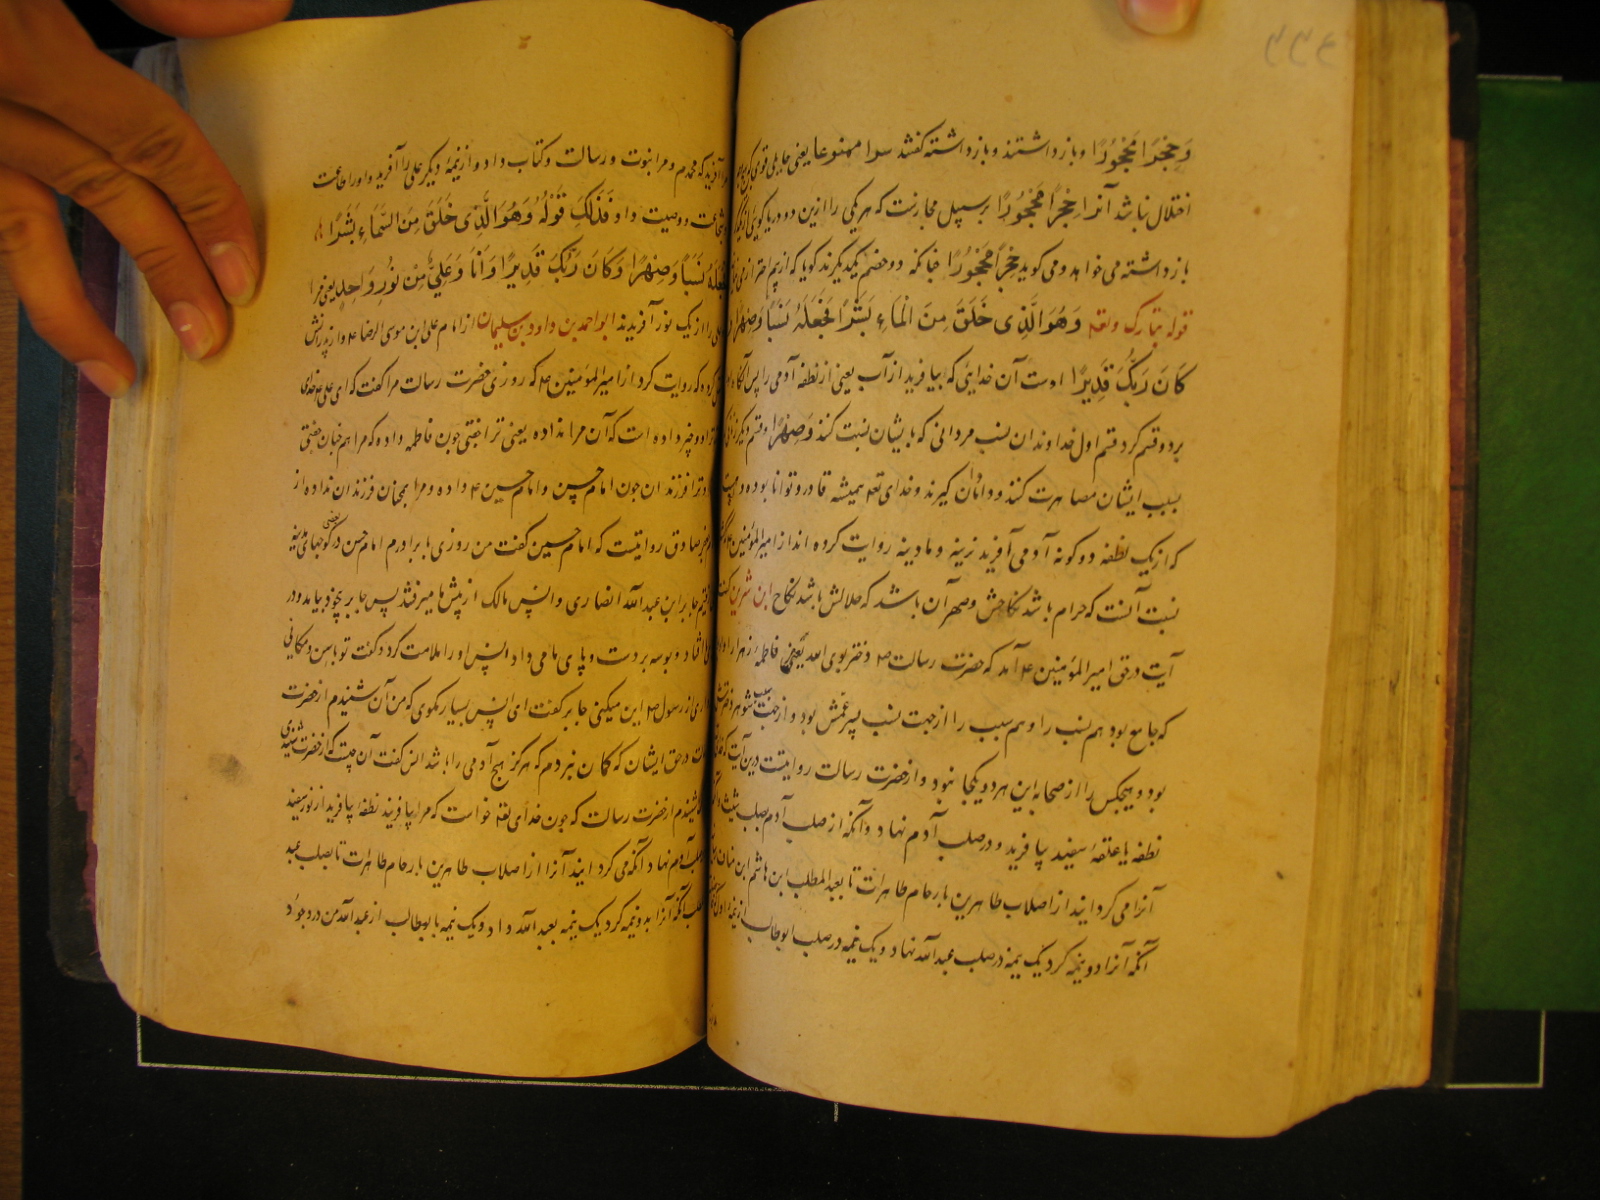 ۲۲۶
وَحِجْرًا مَحْجُورًا و بازداشتند و بازداشته گفتند سدا ممنوعا یعنی حایلی قوی که
اختلال نباشد آنرا حِجْرًا مَحْجُورًا بر سبیل مجازست که هر یکی را ازین دو دریا کوئی
بازداشته می خواهد و می گوید حِجْرًا مَحْجُورًا چنانکه دو خصم یکدیگرند گویا که از هم
قوله تبارک و تعه وَهُوَ الَّذِی خَلَقَ مِنَ الْمَاءِ بَشَرًا فَجَعَلَهُ نَسَبًا وَصِهْرًا وَ
كَانَ رَبُّكَ قَدِيرًا اوست آن خدایی که بیافرید از آب یعنی از نطفه آدمی را پس آنگاه
بر دو قسم کرد قسم اول خداوندان نسب مردانی که بایشان نسبت کنند وَصِهْرًا و قسم دیگر
بسبب ایشان مصاهرت کنند و دامادان گیرند و خدای تعه همیشه قادر و توانا بوده
که از یک نطفه دو کونه آدمی آفرید نرینه و مادینه روایت کرده اند از امیرالمؤمنین ع که
نسبت آنست که حرام باشد نکاحش و صهر آن باشد که حلالش باشد نکاح ابن شیرین گفت
آیت در حق امیرالمؤمنین ع آمد که حضرت رسالت ص دختر بوی داد یعنی فاطمه زهرا
که جامع بود هم نسب را و هم سبب را از جهت نسب پسر عمش بود و از جهت سبب شوهر دخترش
بود و هیچکس را از صحابه این هر دو یکجا نبود و از حضرت رسالت روایتست درین آیت که
نطفه یا علقهٔ سفید بیافرید و در صلب آدم نهاد و آنگه از صلب آدم بصلب شیث
آنرا می گردانید از اصلاب طاهرین بارحام طاهرات تا بعبدالمطلب ابن هاشم ابن
آنگه آنرا دو نیمه کرد یک نیمه در صلب عبدالله نهاد و یک نیمه در صلب ابوطالب
آفرید که محمدم و مرا نبوت و رسالت و کتاب داد و از نیمهٔ دیگر علی را آفرید و او را
شجاعت و وصیت داد فَذَلِكَ قَوْلُهُ وَهُوَ الَّذِی خَلَقَ مِنَ السَّمَاءِ بَشَرًا
فَجَعَلَهُ نَسَبًا وَصِهْرًا وَكَانَ رَبُّكَ قَدِيرًا وَأَنَا وَعَلِيٌّ مِنْ نُورٍ وَاحِدٍ یعنی مرا
علی را از یک نور آفریدند ابو احمد بن داود بن سلیمان از امام علی ابن موسی الرضا ع و از پدرانش
کرده که روایت کرد از امیرالمؤمنین ع که روزی حضرت رسالت مرا گفت که ای علی
چیز داده است که آن مرا نداده یعنی ترا جفتی چون فاطمه داده که مرا همچنان جفتی
و ترا فرزندان چون امام حسن و امام حسین ع داده و مرا همچنان فرزندان نداده از
جعفر صادق روایتست که امام حسین گفت من روزی با برادرم امام حسن در بعضی کوچهای مدینه
جابر ابن عبدالله انصاری و انس مالک از پیش ما میرفتند پس جابر بیامد و در
افتاد و بوسه بر دست و پای ما می داد انس او را ملامت کرد و گفت تو باسن و مکانی
از رسول ص این میکنی جابر گفت ای انس بسیار مگوی که من آن شنیدم از حضرت
در حق ایشان که گمان نبردم که هرگز هیچ آدمی را باشد انس گفت آن چیست که از حضرت شنیدی
شنیدم از حضرت رسالت که چون خدای تعه خواست که مرا بیافریند نطفهٔ بیافرید از نور سفید
صلب آدم نهاد آنگه می گردانید آنرا از اصلاب طاهرین بارحام طاهرات تا بصلب عبد
المطلب آنگه آنرا بدو نیمه کرد یک نیمه بعبدالله داد و یک نیمه بابوطالب از عبدالله من در وجود